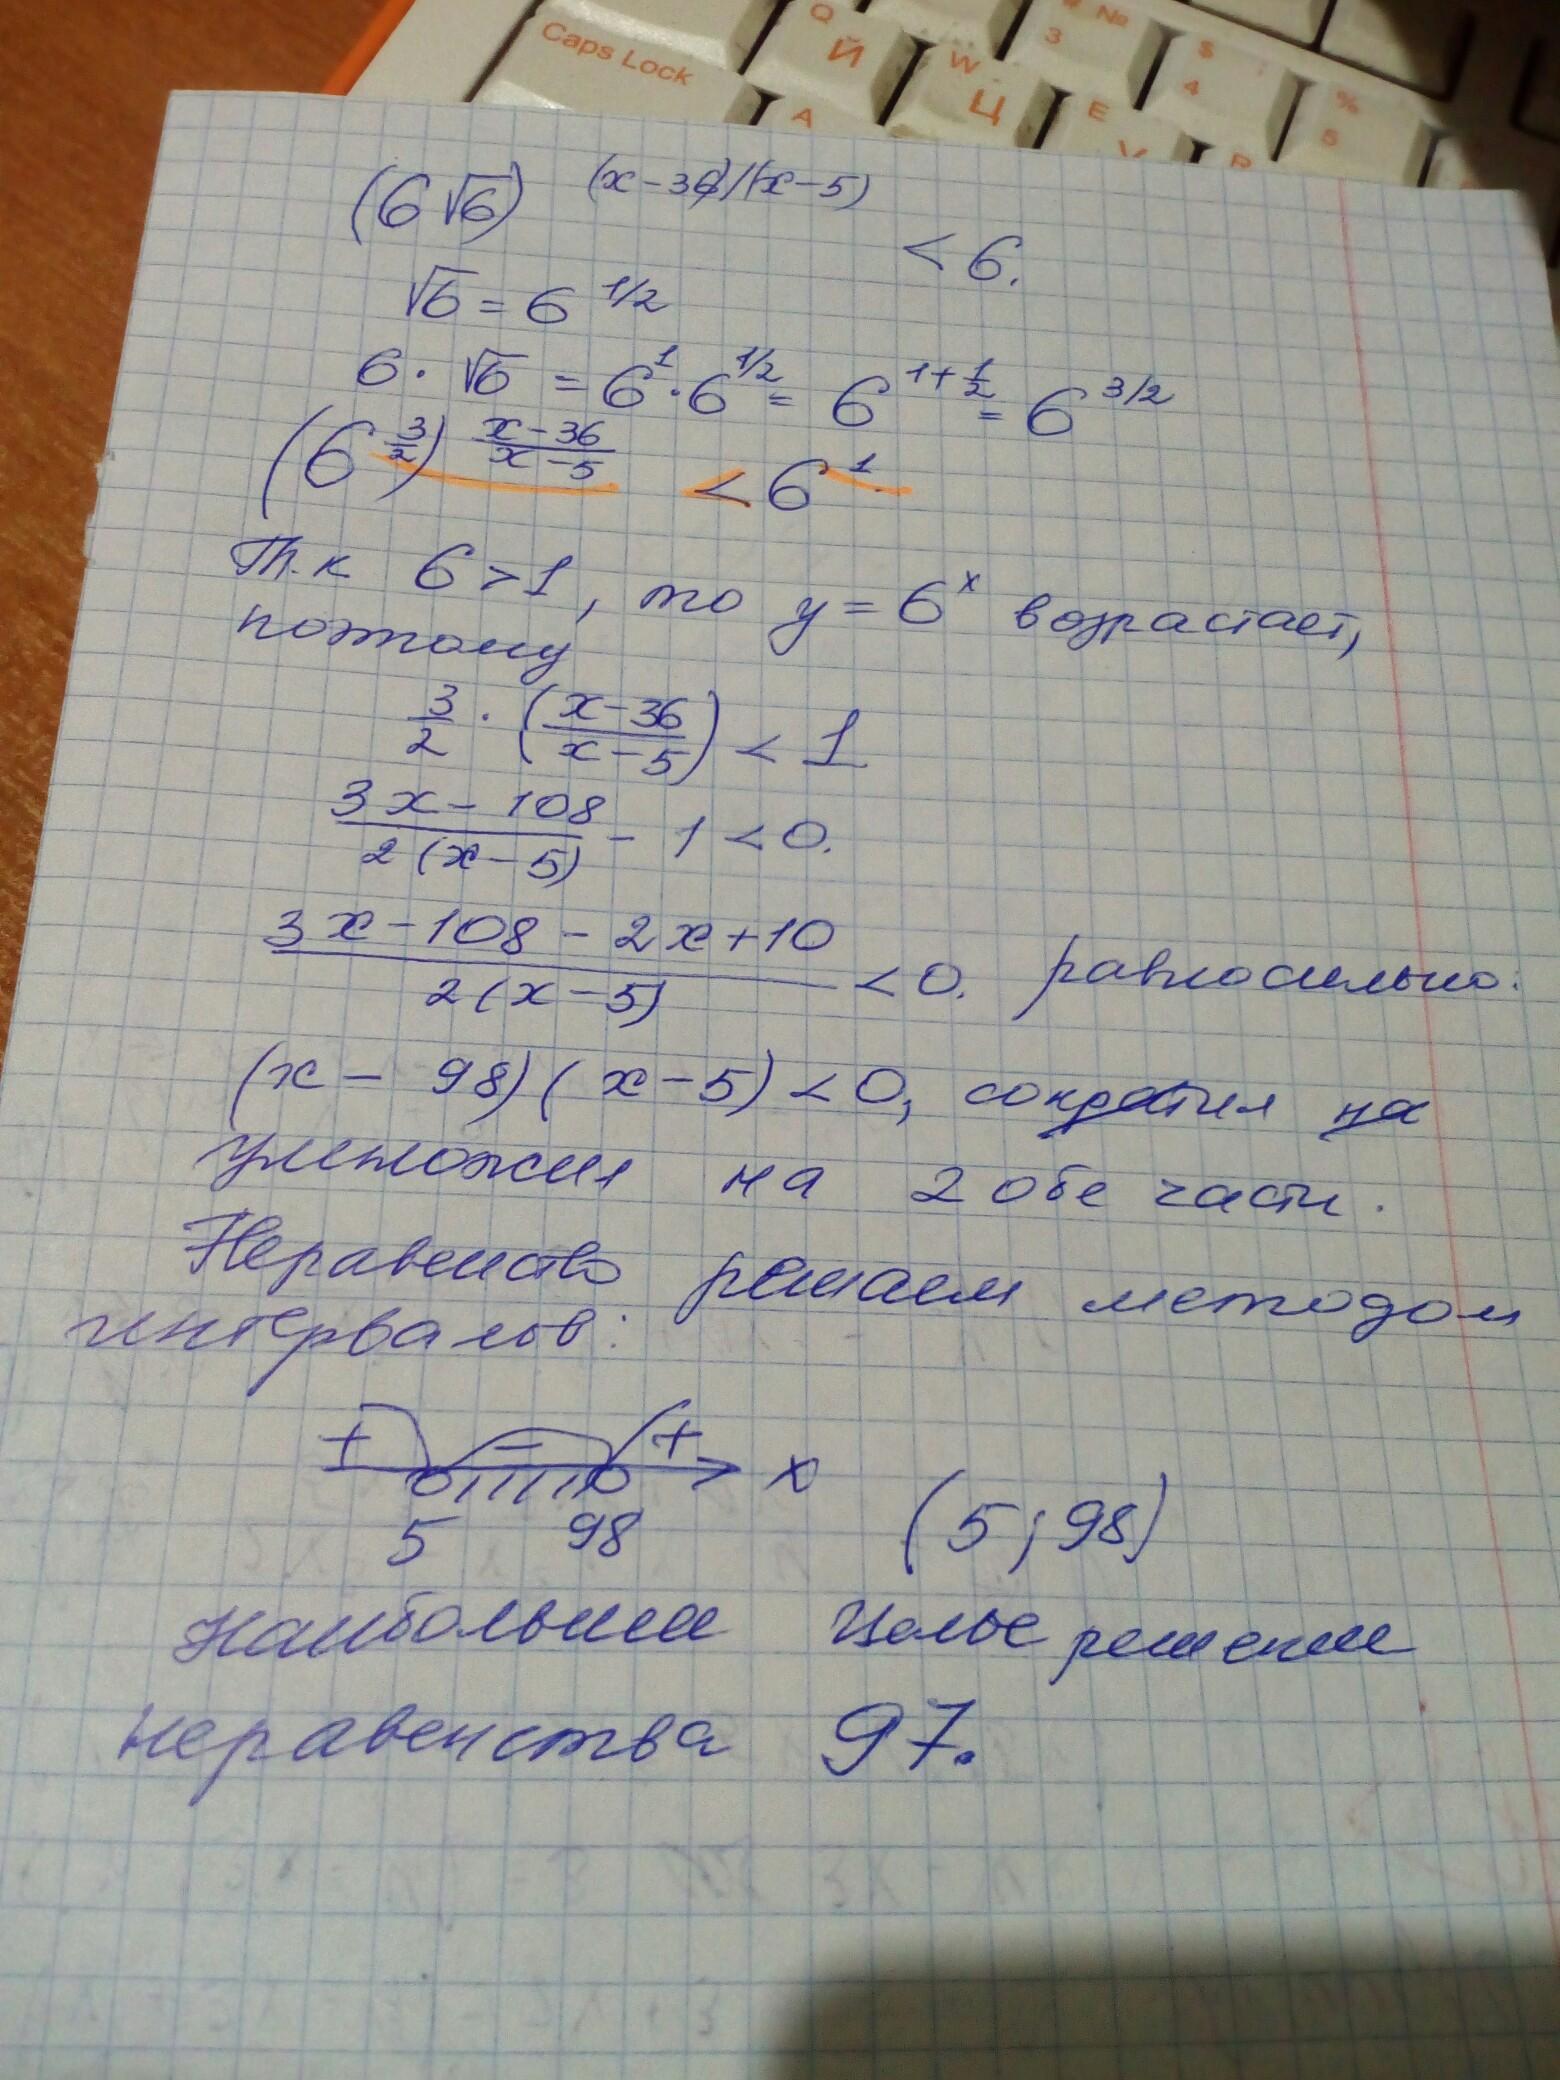 Caps Lock
Q Й
W Ц
3 №
$ 4
% 5
A
E У
R
(6√6)^(x-36)/(x-5) < 6.
√6 = 6^1/2
6 · √6 = 6^1 · 6^1/2 = 6^1+1/2 = 6^3/2
(6^3/2)^(x-36)/(x-5) < 6^1
Т.к 6 > 1, то y = 6^x возрастает,
поэтому
3/2 · ((x-36)/(x-5)) < 1
(3x-108)/(2(x-5)) - 1 < 0.
(3x-108-2x+10)/(2(x-5)) < 0. равносильно:
(x - 98)(x-5) < 0, сократил на
умножил на 2 обе части.
Неравенство решаем методом
интервалов:
+ - + x
5 98 (5; 98)
Наибольшее целое решение
неравенства 97.